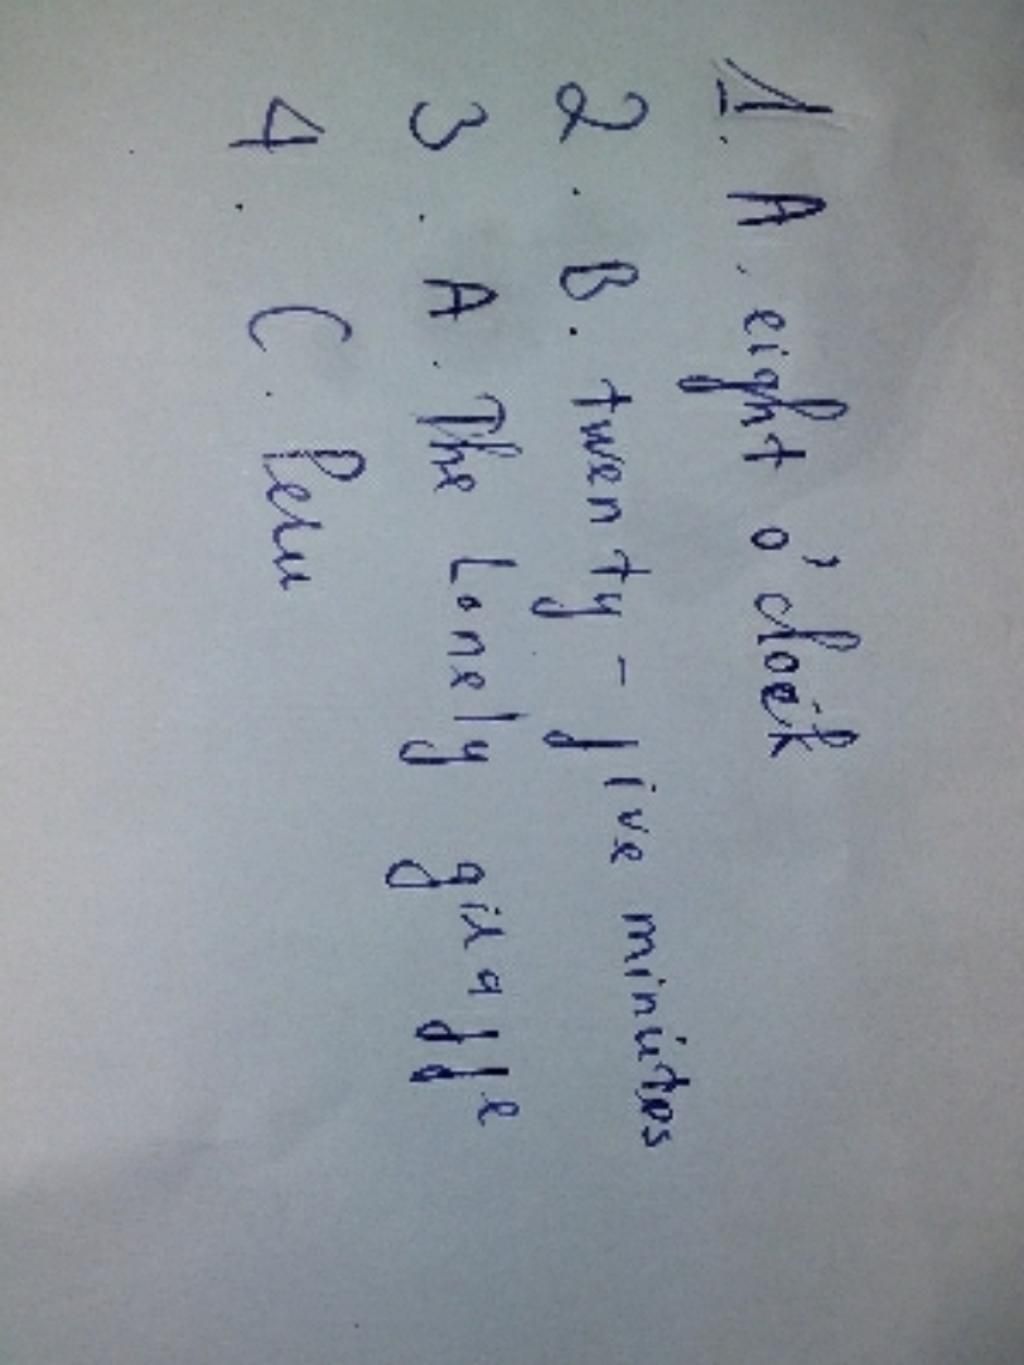 1. A. eight o'clock
2. B. twenty-five minutes
3. A. The Lonely giraffe
4. C. Peru